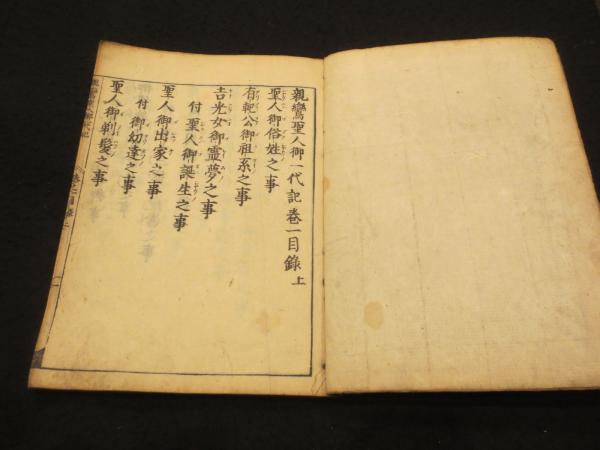 親鸞聖人御一代記巻一目録 上
聖人御俗姓之事
有範公御祖系之事
吉光女御霊夢之事
付聖人御誕生之事
聖人御出家之事
付御幼達之事
聖人御剃髪之事